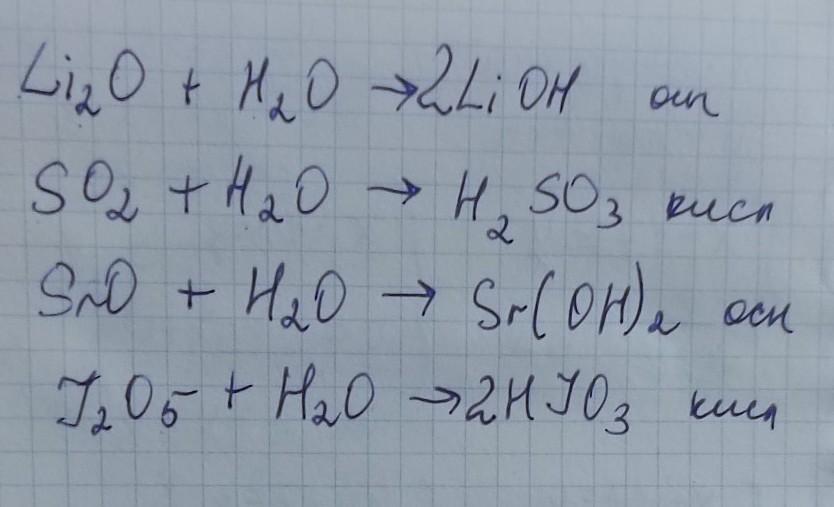 Li₂O + H₂O → 2LiOH осн
SO₂ + H₂O → H₂SO₃ кисл
SrO + H₂O → Sr(OH)₂ осн
J₂O₅ + H₂O → 2HJO₃ кисл